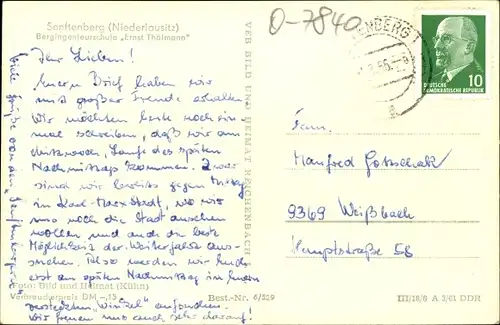 Senftenberg (Niederlausitz)
Bergingenieurschule „Ernst Thälmann"
O-7840
ENDERG 1
10
DEUTSCHE
DEMOKRATISCHE REPUBLIK
VEB BILD UND HEIMAT REICHENBACH
Ihr Lieben!
Euern Brief haben wir
mit großer Freude erhalten.
Wir möchten heute noch ein-
mal schreiben, daß wir am
Mittwoch, Laufe des späten
Nachmittags kommen. Zwar
sind wir bereits gegen Mittag
in Karl-Marx-Stadt, wo wir
uns noch die Stadt ansehen
wollen und auch die beste
Möglichkeit der Weiterfahrt aus-
suchen. Also werden wir Euch
erst am späten Nachmittag in Eurem
versteckten „Winkel" aufsuchen.
Wir freuen uns auch sehr darauf!
Viele Grüße von den
Fam.
Manfred Gottschalk
9369 Weißbach
Hauptstraße 58
Foto: Bild und Heimat (Kühn)
Verbraucherpreis DM -,15
Best.-Nr. 6/529
III/18/6 A 3/61 DDR